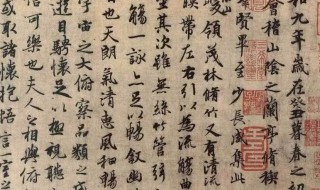 和九年歲在癸丑暮春之初
會稽山陰之蘭亭脩稧
賢畢至少長咸集此
峻領茂林脩竹又有清流
暎帶左右引以為流觴曲
坐其次雖無絲竹管弦
觴一詠亦足以暢敘幽
也天朗氣清惠風和暢
宇宙之大俯察品類之盛
遊目騁懷足以極視聽
可樂也夫人之相與俯
或取諸懷抱悟言一室